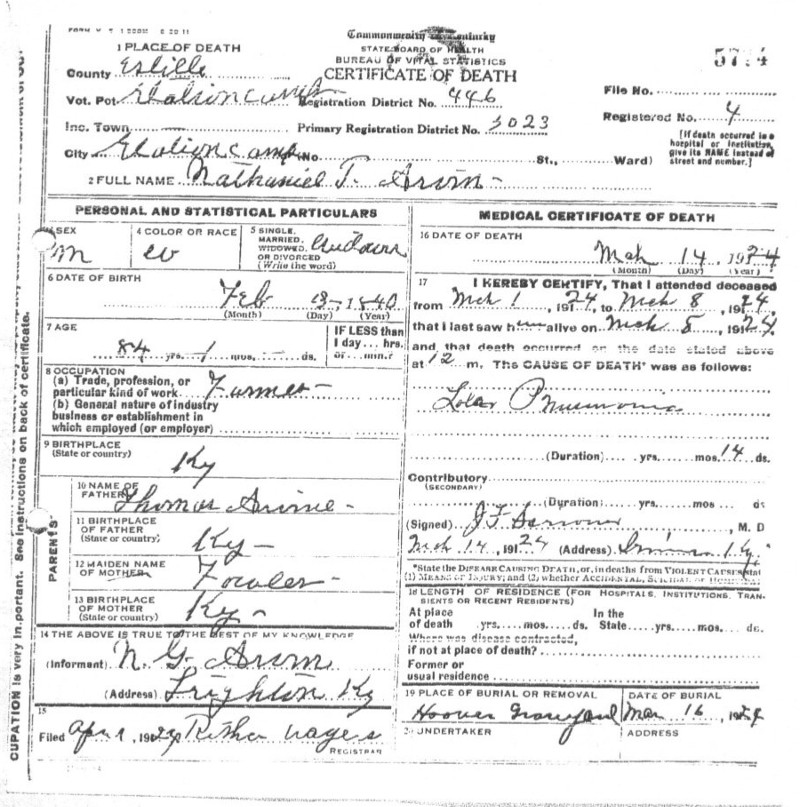 Commonwealth of Kentucky
STATE BOARD OF HEALTH
BUREAU OF VITAL STATISTICS
CERTIFICATE OF DEATH
1 PLACE OF DEATH
County Estille
Vot. Pct. Station Camp Registration District No. 446
File No.
Inc. Town Primary Registration District No. 3023
Registered No. 4
City Station Camp No. St., Ward)
[If death occurred in a
hospital or institution,
give its NAME instead of
street and number.]
2 FULL NAME Nathaniel T. Arvin
PERSONAL AND STATISTICAL PARTICULARS
SEX
M
4 COLOR OR RACE
W
5 SINGLE,
MARRIED,
WIDOWED,
OR DIVORCED
(Write the word)
6 DATE OF BIRTH
Feb 1840
(Month) (Day) (Year)
7 AGE
84 yrs. 1 mos. ds.
IF LESS than
1 day... hrs.
or... min.?
8 OCCUPATION
(a) Trade, profession, or
particular kind of work Farmer
(b) General nature of industry
business or establishment in
which employed (or employer)
9 BIRTHPLACE
(State or country)
Ky
PARENTS
10 NAME OF
FATHER
Thomas
11 BIRTHPLACE
OF FATHER
(State or country)
Ky
12 MAIDEN NAME
OF MOTHER
13 BIRTHPLACE
OF MOTHER
(State or country)
Ky
14 THE ABOVE IS TRUE TO THE BEST OF MY KNOWLEDGE
(Informant) N. G. Arvin
(Address) Ky
15
Filed Apr 1, 1924
REGISTRAR
MEDICAL CERTIFICATE OF DEATH
16 DATE OF DEATH
Mch 14, 1924
(Month) (Day) (Year)
17 I HEREBY CERTIFY, That I attended deceased
from Mch 1, 1924, to Mch 8, 1924,
that I last saw h alive on Mch 8, 1924.
and that death occurred on the date stated above
at 12 m. The CAUSE OF DEATH* was as follows:
Lobar Pneumonia
(Duration) yrs. mos. 14 ds.
Contributory
(SECONDARY)
(Duration) yrs. mos. ds
(Signed) M. D
Mch 14, 1924 (Address) Ky.
*State the DISEASE CAUSING DEATH, or, in deaths from VIOLENT CAUSES, state
(1) MEANS OF INJURY; and (2) whether ACCIDENTAL, SUICIDAL or HOMICIDAL
18 LENGTH OF RESIDENCE (FOR HOSPITALS, INSTITUTIONS, TRAN-
SIENTS OR RECENT RESIDENTS)
At place In the
of death yrs. mos. ds. State yrs. mos. ds.
Where was disease contracted,
if not at place of death?
Former or
usual residence
19 PLACE OF BURIAL OR REMOVAL
Hoover Graveyard
DATE OF BURIAL
Mar 16, 1924
20 UNDERTAKER
ADDRESS
CUPATION is very important. See instructions on back of certificate.